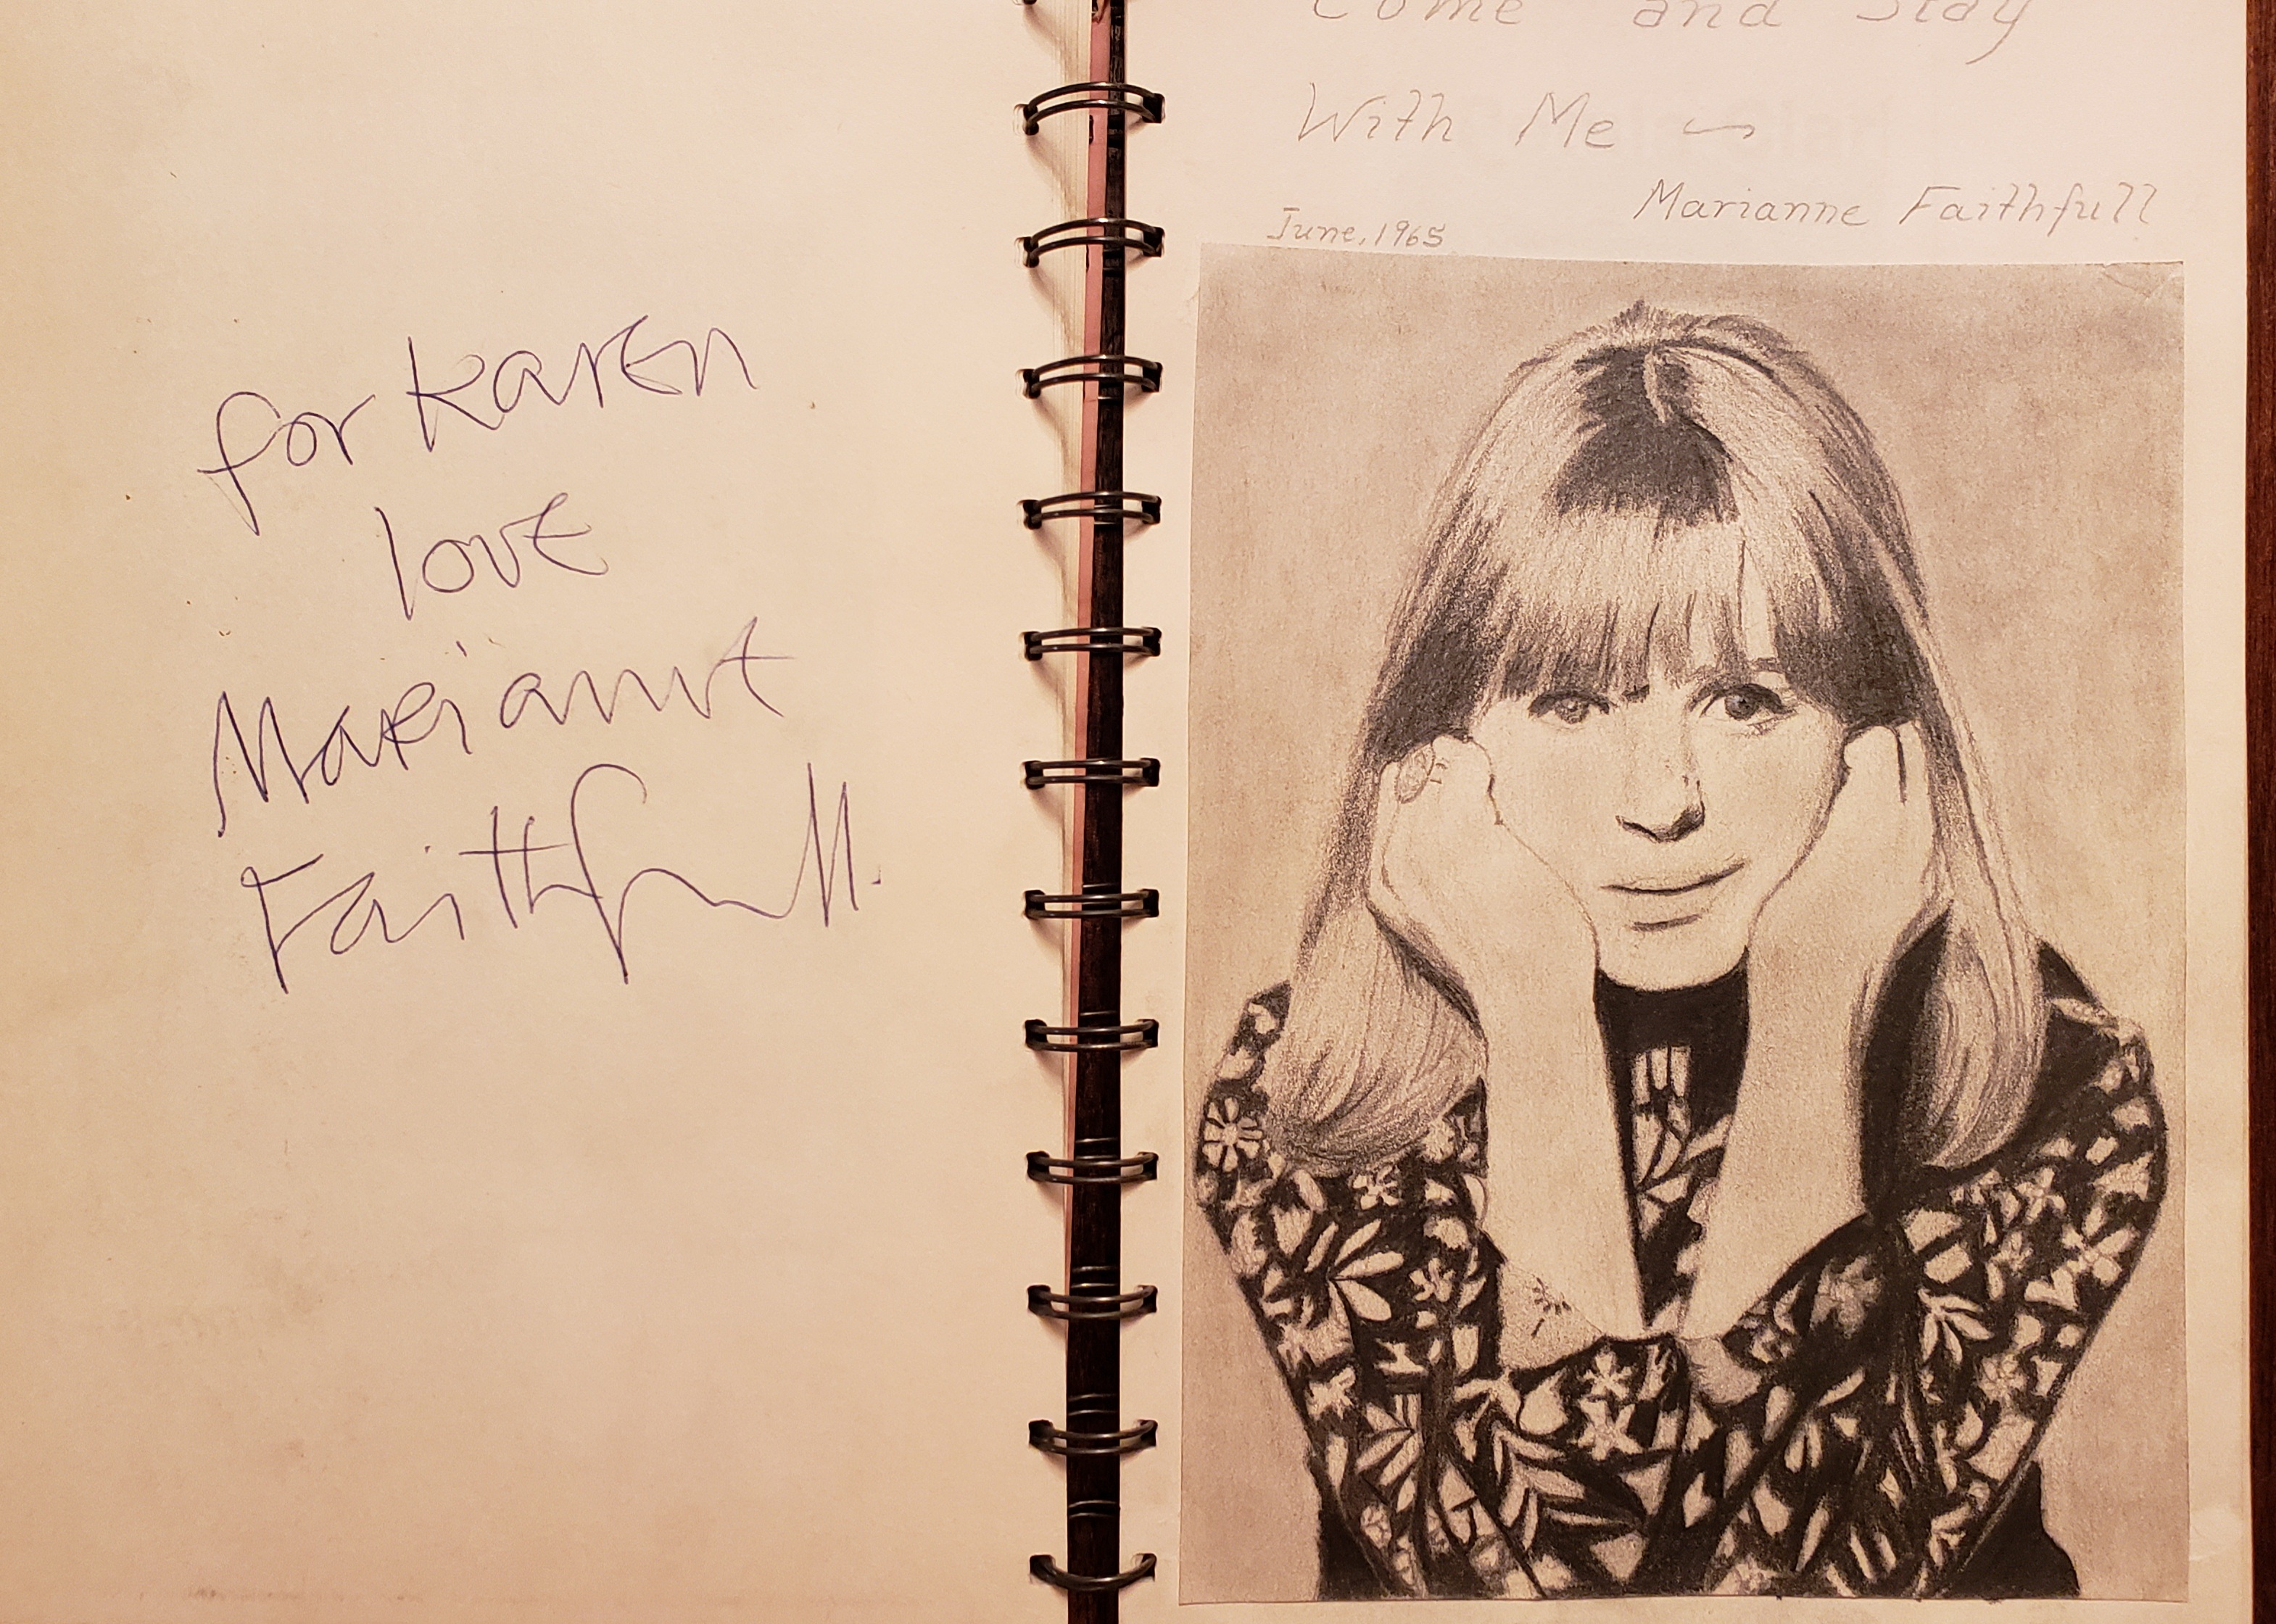 for Karen
love
Marianne
Faithfull.
Come and Stay
With Me ~
Marianne Faithfull
June, 1965